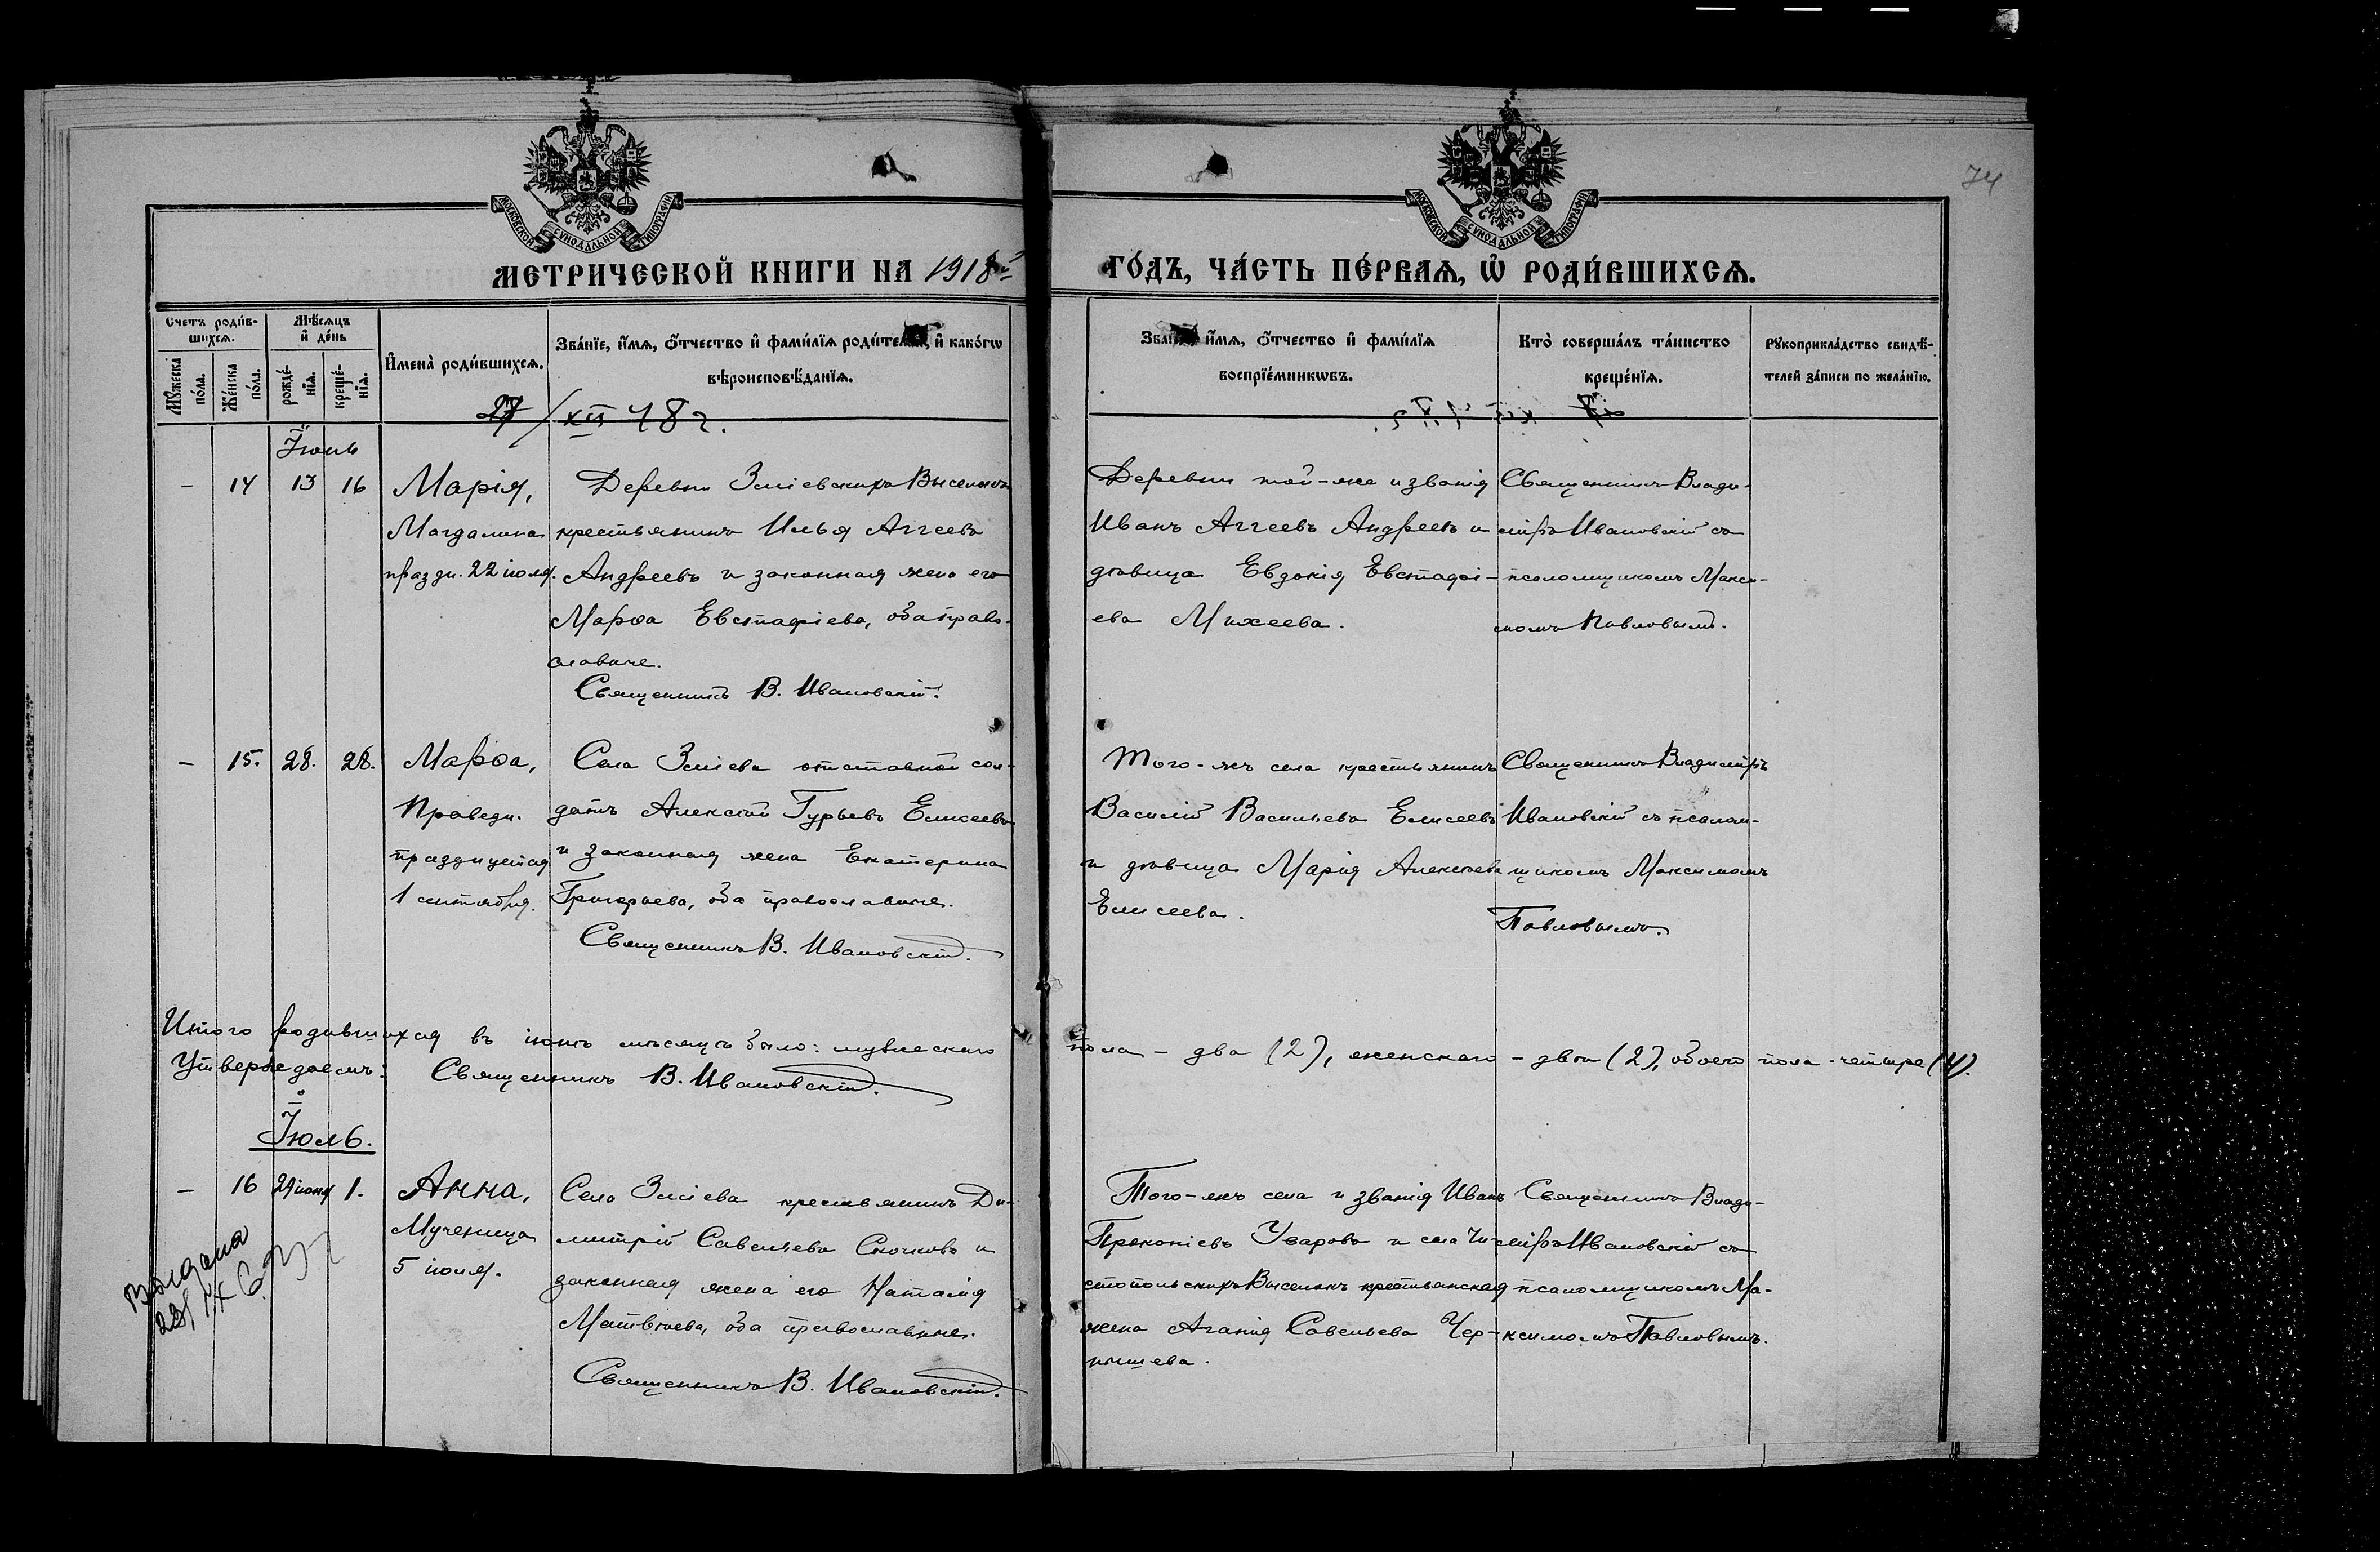 74
МОСКОВСКОЙ СѴНОДАЛЬНОЙ ТИПОГРАФІИ
МОСКОВСКОЙ СѴНОДАЛЬНОЙ ТИПОГРАФІИ
МЕТРИЧЕСКОЙ КНИГИ НА 1918й
ГО́ДЪ, ЧА́СТЬ ПЕ́РВАѦ, Ѡ҆ РОДИ́ВШИХСѦ.
Счетъ роди́в-
шихсѧ.
Мꙋжеска по́ла.
Же́нска по́ла.
Мѣ́сѧцъ
и҆ де́нь
рожде́-
нїѧ.
креще́-
нїѧ.
И҆мена̀ роди́вшихсѧ.
Зва́нїе, и҆́мѧ, ѻ҆́тчество и҆ фами́лїѧ роди́телей, и҆ како́гѡ
вѣроисповѣ́данїѧ.
Зва́нїе, и҆́мѧ, ѻ҆́тчество и҆ фами́лїѧ
воспрїе́мникѡвъ.
Кто̀ соверша́лъ та́инство
креще́нїѧ.
Рꙋкоприкла́дство свидѣ́-
телей за́писи по жела́нїю.
27/XII 18 г.
Іюнь
– 14 13 16
Марія,
Магдалина
праздн. 22 іюля.
Деревни Зміевскихъ Выселокъ
крестьянинъ Илья Аггеевъ
Андреевъ и законная жена его
Марѳа Евстафіева, оба право-
славные.
Священникъ В. Ивановскій.
Деревни той-же и званія
Иванъ Аггеевъ Андреевъ и
дѣвица Евдокія Евстафі-
ева Михеева.
Священникъ Влади-
міръ Ивановскій съ
псаломщикомъ Макси-
момъ Павловымъ.
– 15. 28. 28.
Марѳа,
Праведн.
празднуемая
1 сентября.
Села Зміева отставной сол-
датъ Алексѣй Гурьевъ Елисеевъ
и законная жена Екатерина
Григорьева, оба православные.
Священникъ В. Ивановскій.
Того-жъ села крестьянинъ
Василій Васильевъ Елисеевъ
и дѣвица Марія Алексѣева
Елисеева.
Священникъ Владиміръ
Ивановскій съ псалом-
щикомъ Максимомъ
Павловымъ.
Итого родившихся въ іюнѣ мѣсяцѣ было: мужескаго пола – два (2), женскаго – два (2), обоего пола – четыре (4).
Утверждаемъ: Священникъ В. Ивановскій.
Іюль.
– 16 29 іюня 1.
Выдана
28/IX 6
Анна,
Мученица
5 іюля.
Села Зміева крестьянинъ Ди-
митрій Савельевъ Скочковъ и
законная жена его Наталія
Матвѣева, оба православные.
Священникъ В. Ивановскій.
Того-жъ села и званія Иванъ
Прокопіевъ Уваровъ и села Чи-
стопольскихъ Выселокъ крестьянская
жена Агапія Савельева Чер-
нышева.
Священникъ Влади-
міръ Ивановскій съ
псаломщикомъ Ма-
ксимомъ Павловымъ.